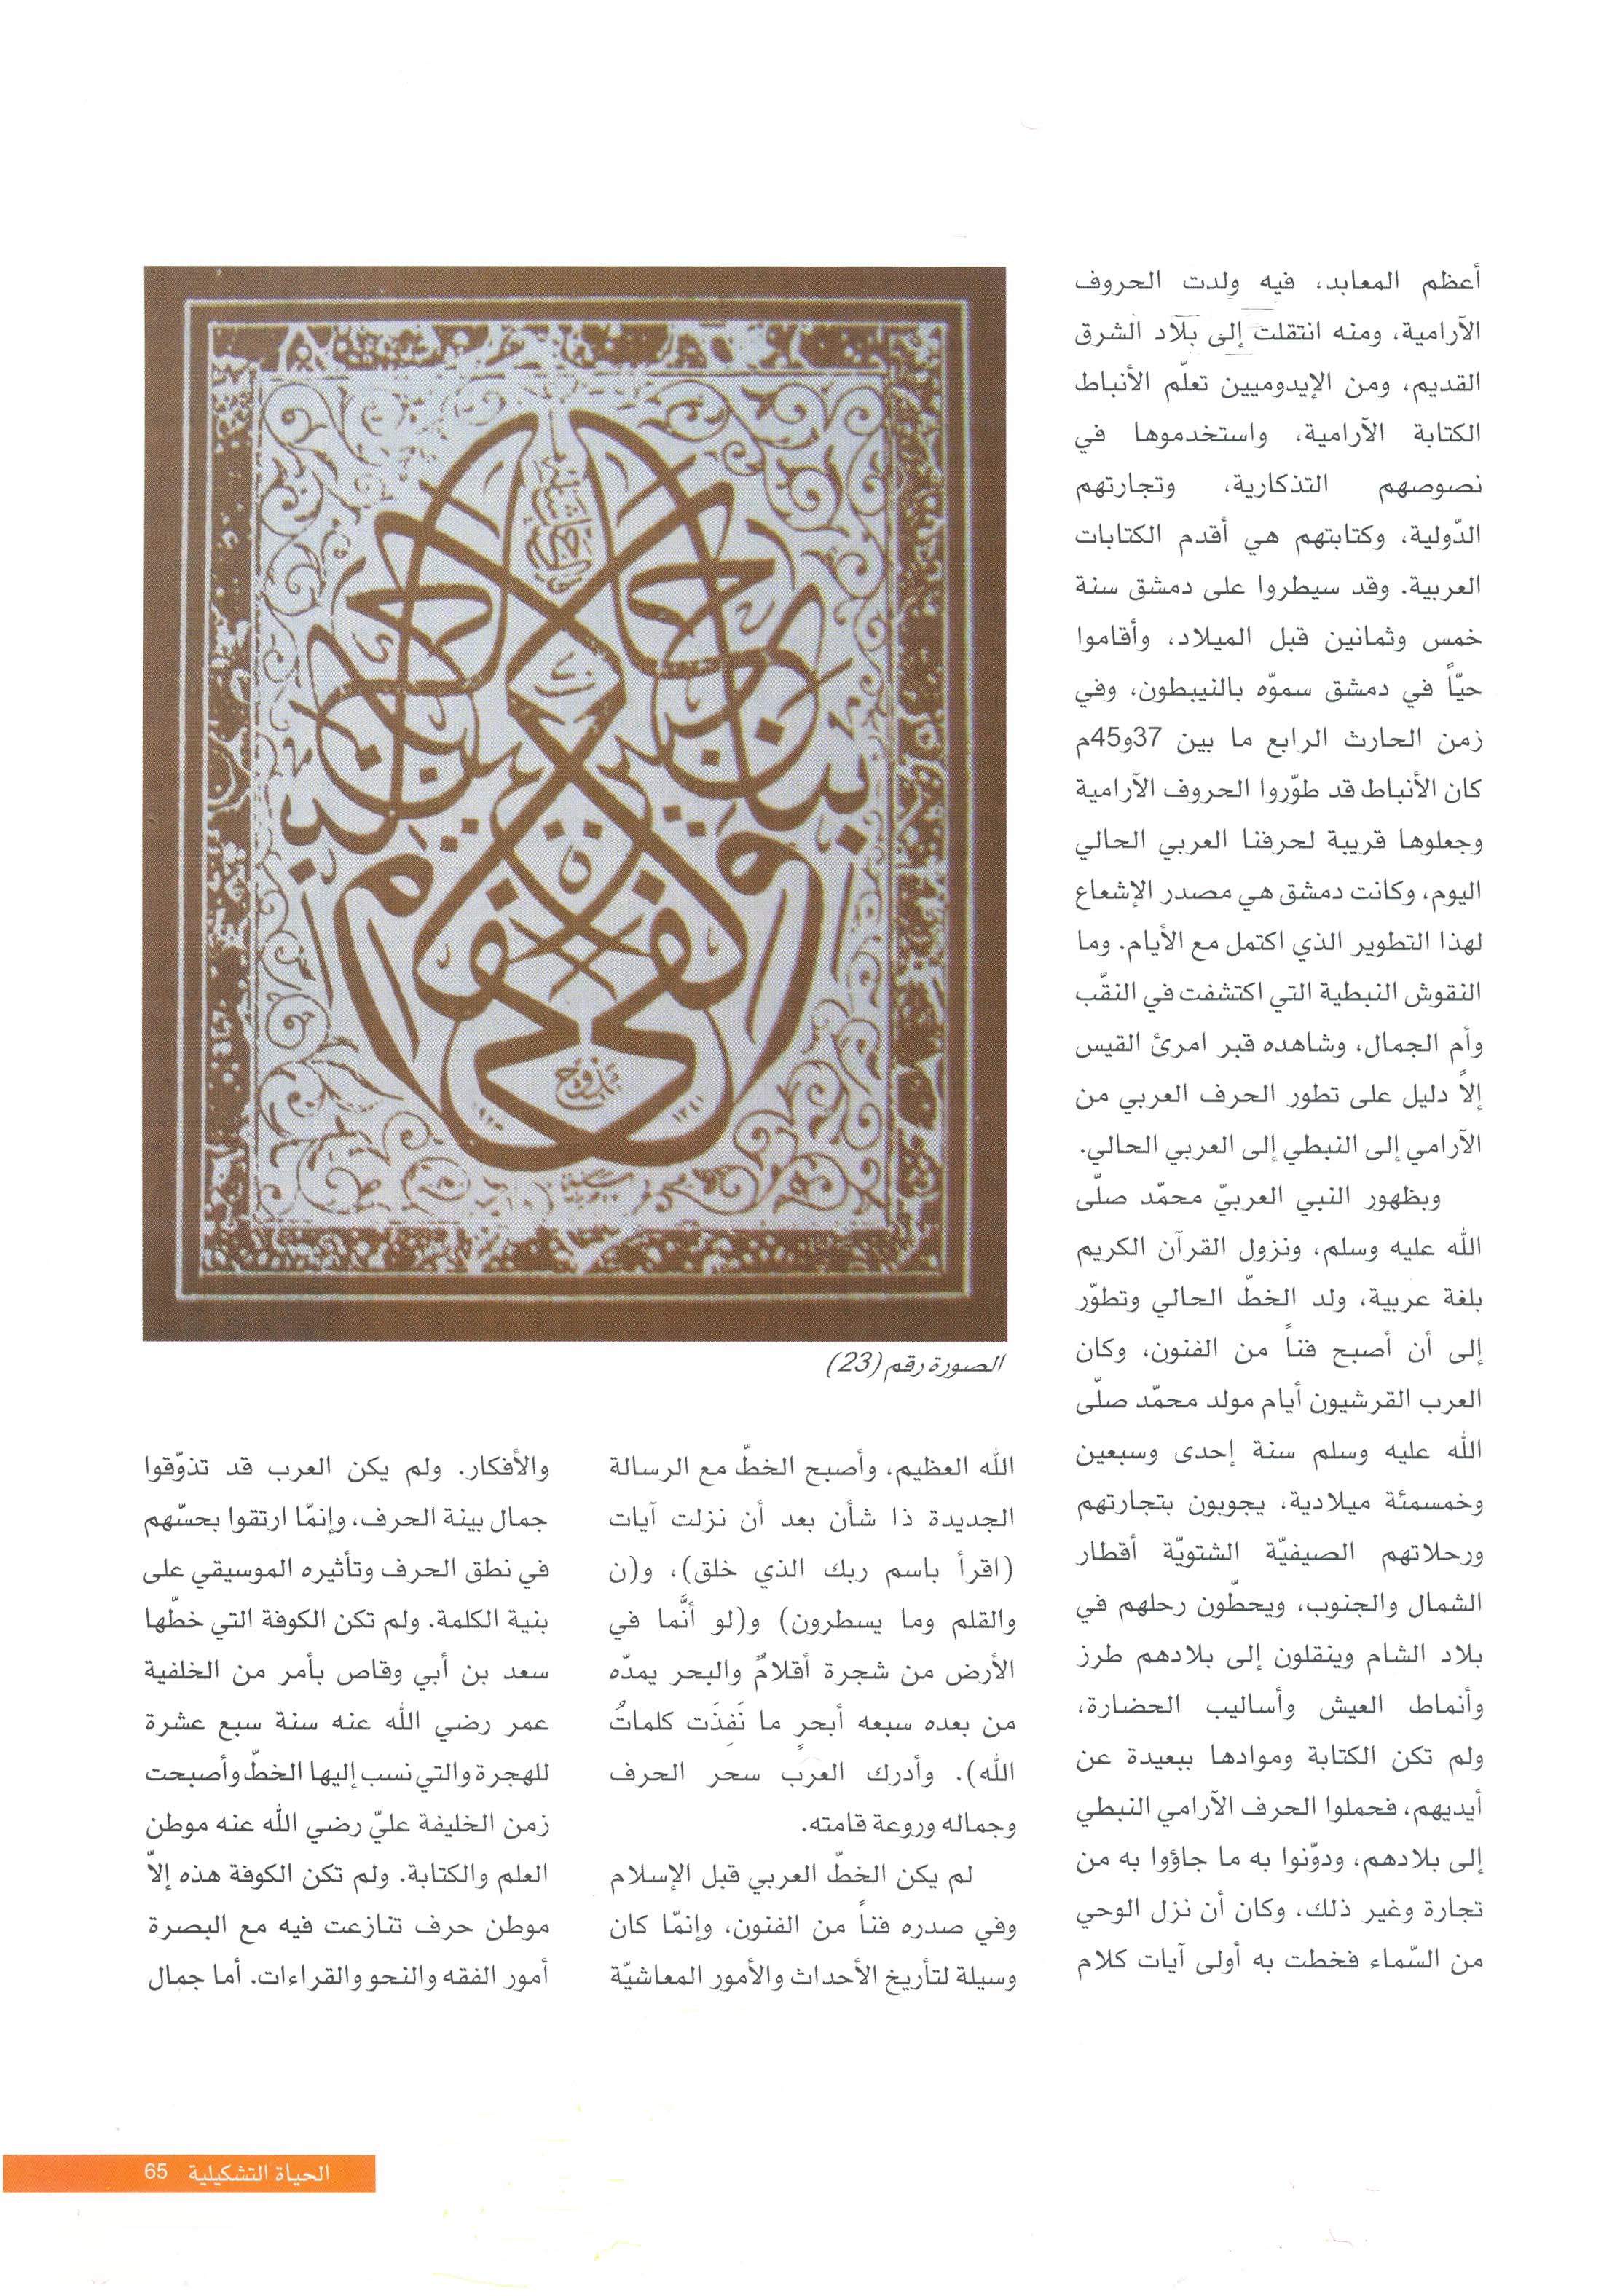 أعظم المعابد، فيه ولدت الحروف
الآرامية، ومنه انتقلت إلى بلاد الشرق
القديم، ومن الإيدوميين تعلّم الأنباط
الكتابة الآرامية، واستخدموها في
نصوصهم التذكارية، وتجارتهم
الدّولية، وكتابتهم هي أقدم الكتابات
العربية. وقد سيطروا على دمشق سنة
خمس وثمانين قبل الميلاد، وأقاموا
حيّاً في دمشق سموّه بالنيبطون، وفي
زمن الحارث الرابع ما بين 37و45م
كان الأنباط قد طوّروا الحروف الآرامية
وجعلوها قريبة لحرفنا العربي الحالي
اليوم، وكانت دمشق هي مصدر الإشعاع
لهذا التطوير الذي اكتمل مع الأيام. وما
النقوش النبطية التي اكتشفت في النقّب
وأم الجمال، وشاهده قبر امرئ القيس
إلاّ دليل على تطور الحرف العربي من
الآرامي إلى النبطي إلى العربي الحالي.
وبظهور النبي العربيّ محمّد صلّى
الله عليه وسلم، ونزول القرآن الكريم
بلغة عربية، ولد الخطّ الحالي وتطوّر
إلى أن أصبح فناً من الفنون، وكان
العرب القرشيون أيام مولد محمّد صلّى
الله عليه وسلم سنة إحدى وسبعين
وخمسمئة ميلادية، يجوبون بتجارتهم
ورحلاتهم الصيفيّة الشتويّة أقطار
الشمال والجنوب، ويحطّون رحلهم في
بلاد الشام وينقلون إلى بلادهم طرز
وأنماط العيش وأساليب الحضارة،
ولم تكن الكتابة وموادها ببعيدة عن
أيديهم، فحملوا الحرف الآرامي النبطي
إلى بلادهم، ودوّنوا به ما جاؤوا به من
تجارة وغير ذلك، وكان أن نزل الوحي
من السّماء فخطت به أولى آيات كلام
الصورة رقم (23)
الله العظيم، وأصبح الخطّ مع الرسالة
الجديدة ذا شأن بعد أن نزلت آيات
(اقرأ باسم ربك الذي خلق)، و(ن
والقلم وما يسطرون) و(لو أنَّما في
الأرض من شجرة أقلامٌ والبحر يمدّه
من بعده سبعه أبحرٍ ما نَفِذَت كلماتُ
الله). وأدرك العرب سحر الحرف
وجماله وروعة قامته.
لم يكن الخطّ العربي قبل الإسلام
وفي صدره فناً من الفنون، وإنمّا كان
وسيلة لتأريخ الأحداث والأمور المعاشيّة
والأفكار. ولم يكن العرب قد تذوّقوا
جمال بينة الحرف، وإنمّا ارتقوا بحسّهم
في نطق الحرف وتأثيره الموسيقي على
بنية الكلمة. ولم تكن الكوفة التي خطّها
سعد بن أبي وقاص بأمر من الخلفية
عمر رضي الله عنه سنة سبع عشرة
للهجرة والتي نسب إليها الخطّ وأصبحت
زمن الخليفة عليّ رضي الله عنه موطن
العلم والكتابة. ولم تكن الكوفة هذه إلاّ
موطن حرف تنازعت فيه مع البصرة
أمور الفقه والنحو والقراءات. أما جمال
الحياة التشكيلية 65